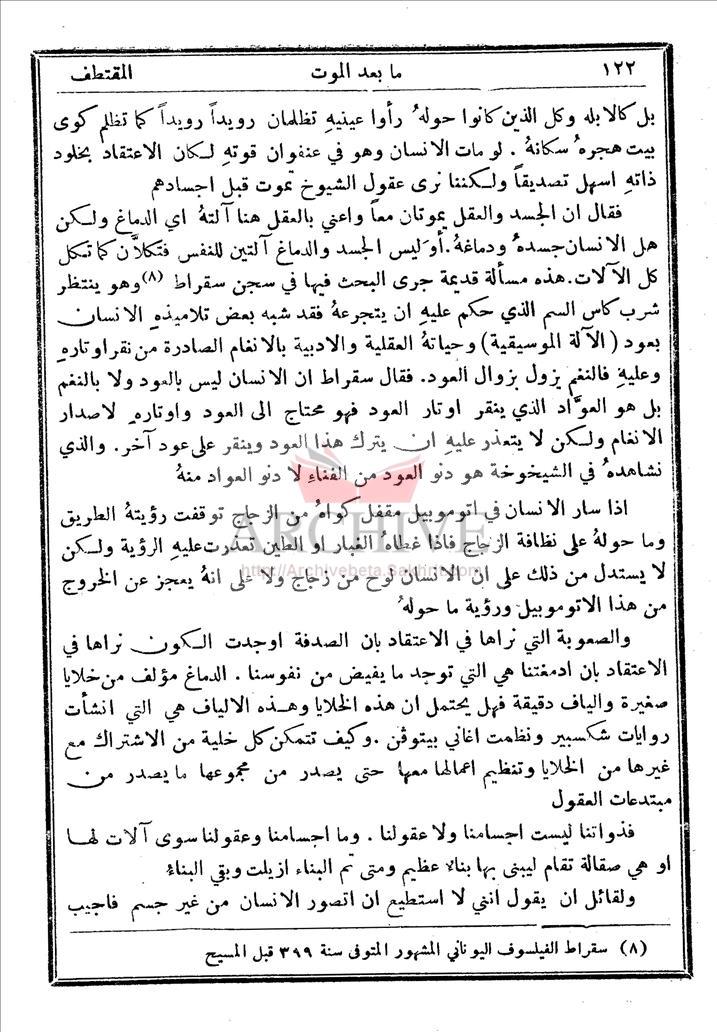 ١٢٢ ما بعد الموت المقتطف
بل كالابله وكل الذين كانوا حولهُ رأوا عينيهِ تظلمان رويداً رويداً كما تظلم كوى
بيت هجرهُ سكانهُ . لو مات الانسان وهو في عنفوان قوتهِ لكان الاعتقاد بخلود
ذاتهِ اسهل تصديقاً ولكننا نرى عقول الشيوخ تموت قبل اجسادهم
فقال ان الجسد والعقل يموتان معاً واعني بالعقل هنا آلتهُ اي الدماغ ولكن
هل الانسان جسدهُ ودماغهُ. أوَليس الجسد والدماغ آلتين للنفس فتكلَّان كما تكل
كل الآلات. هذه مسألة قديمة جرى البحث فيها في سجن سقراط (٨) وهو ينتظر
شرب كاس السم الذي حكم عليهِ ان يتجرعهُ فقد شبه بعض تلاميذهِ الانسان
بعود (الآلة الموسيقية) وحياتهُ العقلية والادبية بالانغام الصادرة من نقر اوتارهِ
وعليهِ فالنغم يزول بزوال العود. فقال سقراط ان الانسان ليس بالعود ولا بالنغم
بل هو العوَّاد الذي ينقر اوتار العود فهو محتاج الى العود واوتارهِ لاصدار
الانغام ولكن لا يتعذر عليهِ ان يترك هذا العود وينقر على عود آخر. والذي
نشاهدهُ في الشيخوخة هو دنو العود من الفناءِ لا دنو العواد منهُ
اذا سار الانسان في اتوموبيل مقفل كواهُ من الزجاج توقفت رؤيتهُ الطريق
وما حولهُ على نظافة الزجاج فاذا غطاهُ الغبار او الطين تعذرت عليهِ الرؤية ولكن
لا يستدل من ذلك على ان الانسان لوح من زجاج ولا على انهُ يعجز عن الخروج
من هذا الاتوموبيل ورؤية ما حولهُ
والصعوبة التي نراها في الاعتقاد بان الصدفة اوجدت الكون نراها في
الاعتقاد بان ادمغتنا هي التي توجد ما يفيض من نفوسنا . الدماغ مؤلف من خلايا
صغيرة والياف دقيقة فهل يحتمل ان هذه الخلايا وهذه الالياف هي التي انشأت
روايات شكسبير ونظمت اغاني بيتوڤن . وكيف تتمكن كل خلية من الاشتراك مع
غيرها من الخلايا وتنظيم اعمالها معها حتى يصدر من مجموعها ما يصدر من
مبتدعات العقول
فذواتنا ليست اجسامنا ولا عقولنا . وما اجسامنا وعقولنا سوى آلات لها
او هي صقالة تقام ليبنى بها بناءٌ عظيم ومتى تم البناء ازيلت وبقي البناءُ
ولقائل ان يقول انني لا استطيع ان اتصور الانسان من غير جسم فاجيب
(٨) سقراط الفيلسوف اليوناني المشهور المتوفى سنة ٣٩٩ قبل المسيح
ARCHIVE
http://Archivebeta.Sakhrit.com